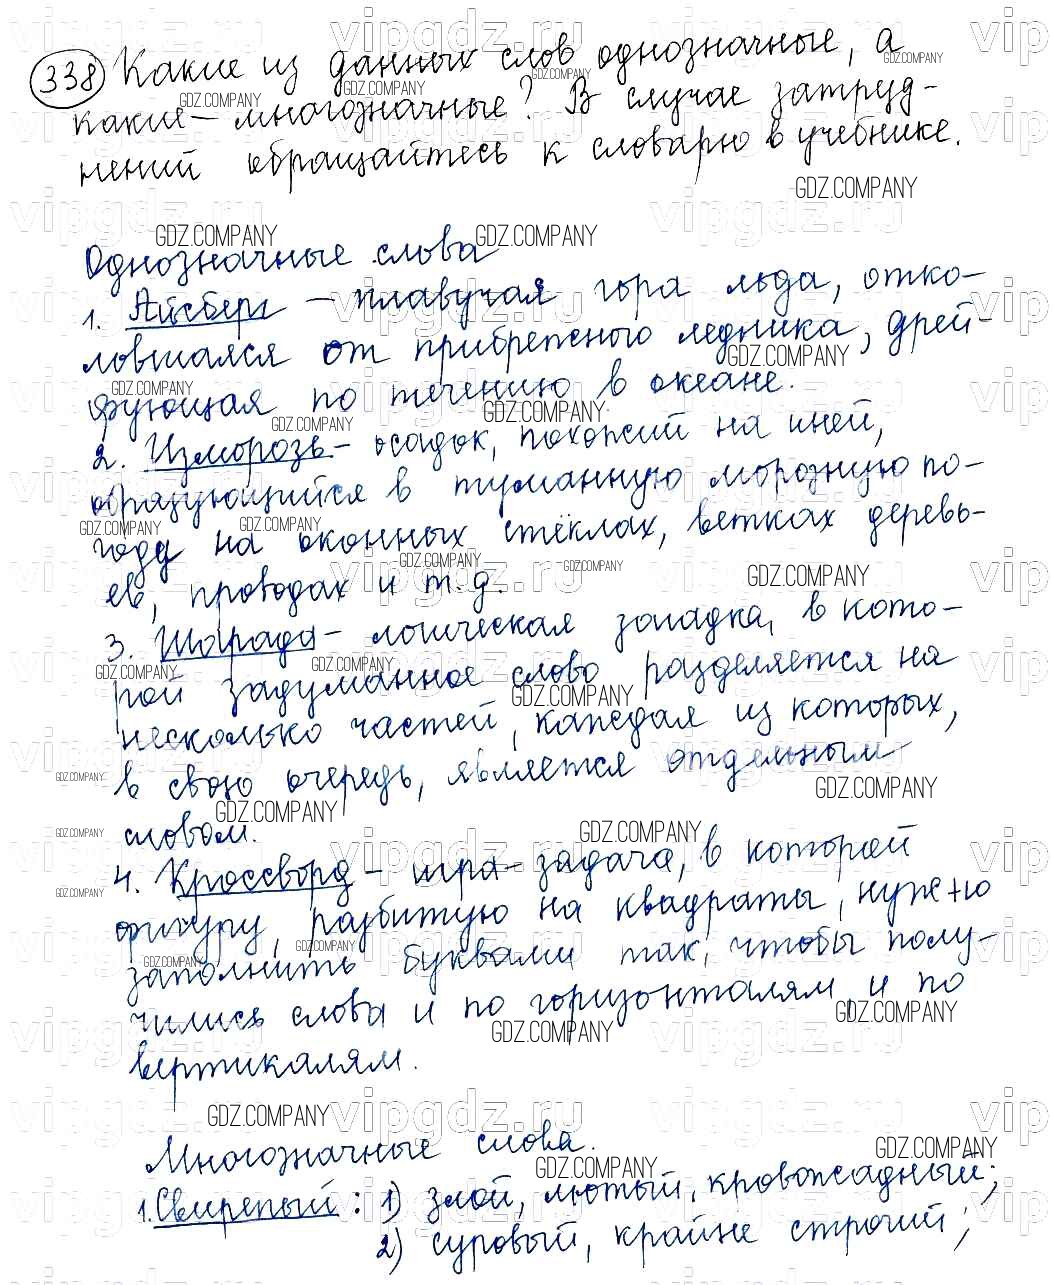 338 Какие из данных слов однозначные, а
какие – многозначные? В случае затруд-
нений обращайтесь к словарю в учебнике.
Однозначные слова
1. Айсберг – плавучая гора льда, отко-
ловшаяся от прибрежного ледника, дрей-
фующая по течению в океане.
2. Изморозь – осадок, похожий на иней,
образующийся в туманную морозную по-
году на оконных стёклах, ветках деревь-
ев, проводах и т.д.
3. Шарада – логическая загадка, в кото-
рой задуманное слово разделяется на
несколько частей, каждая из которых,
в свою очередь, является отдельным
словом.
4. Кроссворд – игра-задача, в которой
фигуру, разбитую на квадраты, нужно
заполнить буквами так, чтобы полу-
чились слова и по горизонталям, и по
вертикалям.
Многозначные слова.
1. Свирепый: 1) злой, лютый, кровожадный;
2) суровый, крайне строгий;
vipgdz.ru
GDZ.COMPANY